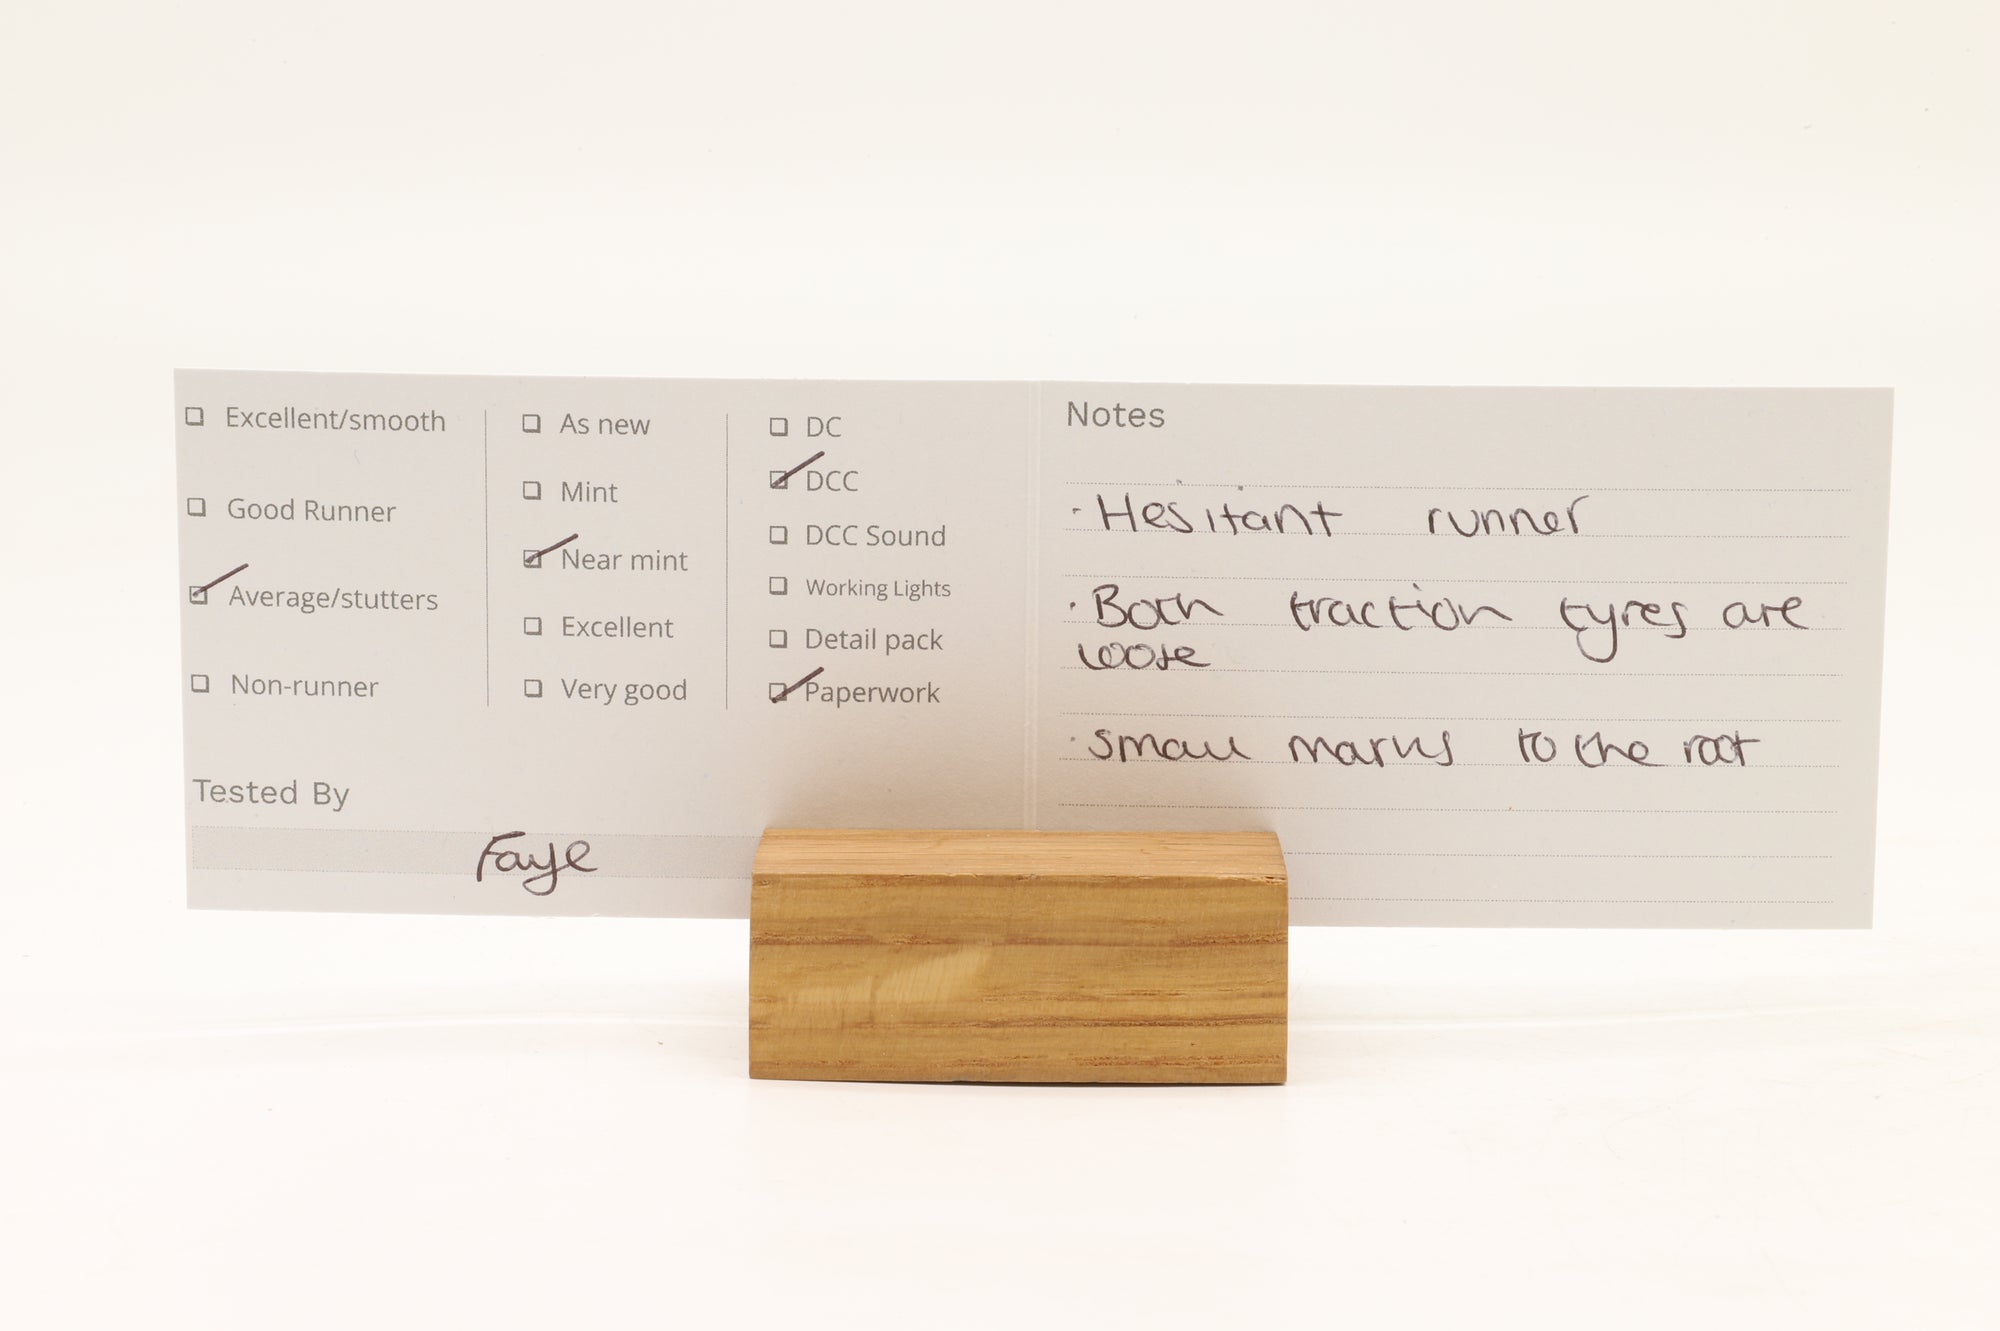 Excellent/smooth
Good Runner
Average/stutters
Non-runner
As new
Mint
Near mint
Excellent
Very good
DC
DCC
DCC Sound
Working Lights
Detail pack
Paperwork
Tested By
Faye
Notes
· Hesitant runner
· Both traction tyres are
loose
· small marks to the roof